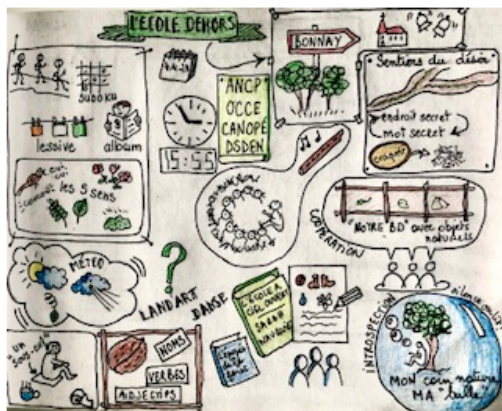 L'ÉCOLE DEHORS
BONNAY
SUDOKU
lessive
album
ANCP
OCCE
CANOPÉ
DSDEN
15:55
Sentiers du désir
endroit secret
mot secret
croquer
les 5 sens
COOPÉRATION
"NOTRE BD" avec objets
naturels
MÉTÉO
?
LAND ART
DANSE
L'ÉCOLE À
CIEL OUVERT
SARAH
WAUQUIEZ
NOMS
VERBES
ADJECTIFS
INTROSPECTION
MON coin nature
MA "bulle"